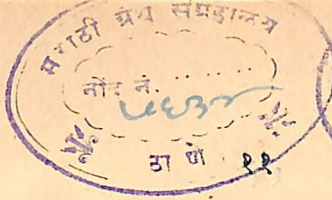 मराठी ग्रंथ संग्रहालय
नोंद नं. ........
ठाणे
११